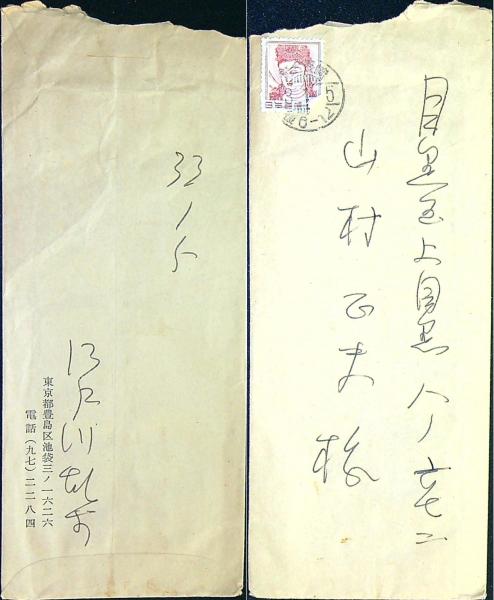 33ノ5
江戸川乱歩
東京都豊島区池袋三ノ一六二六
電話(九七)二二八四
目黒区上目黒八ノ六七二
山村正夫様
日本郵便